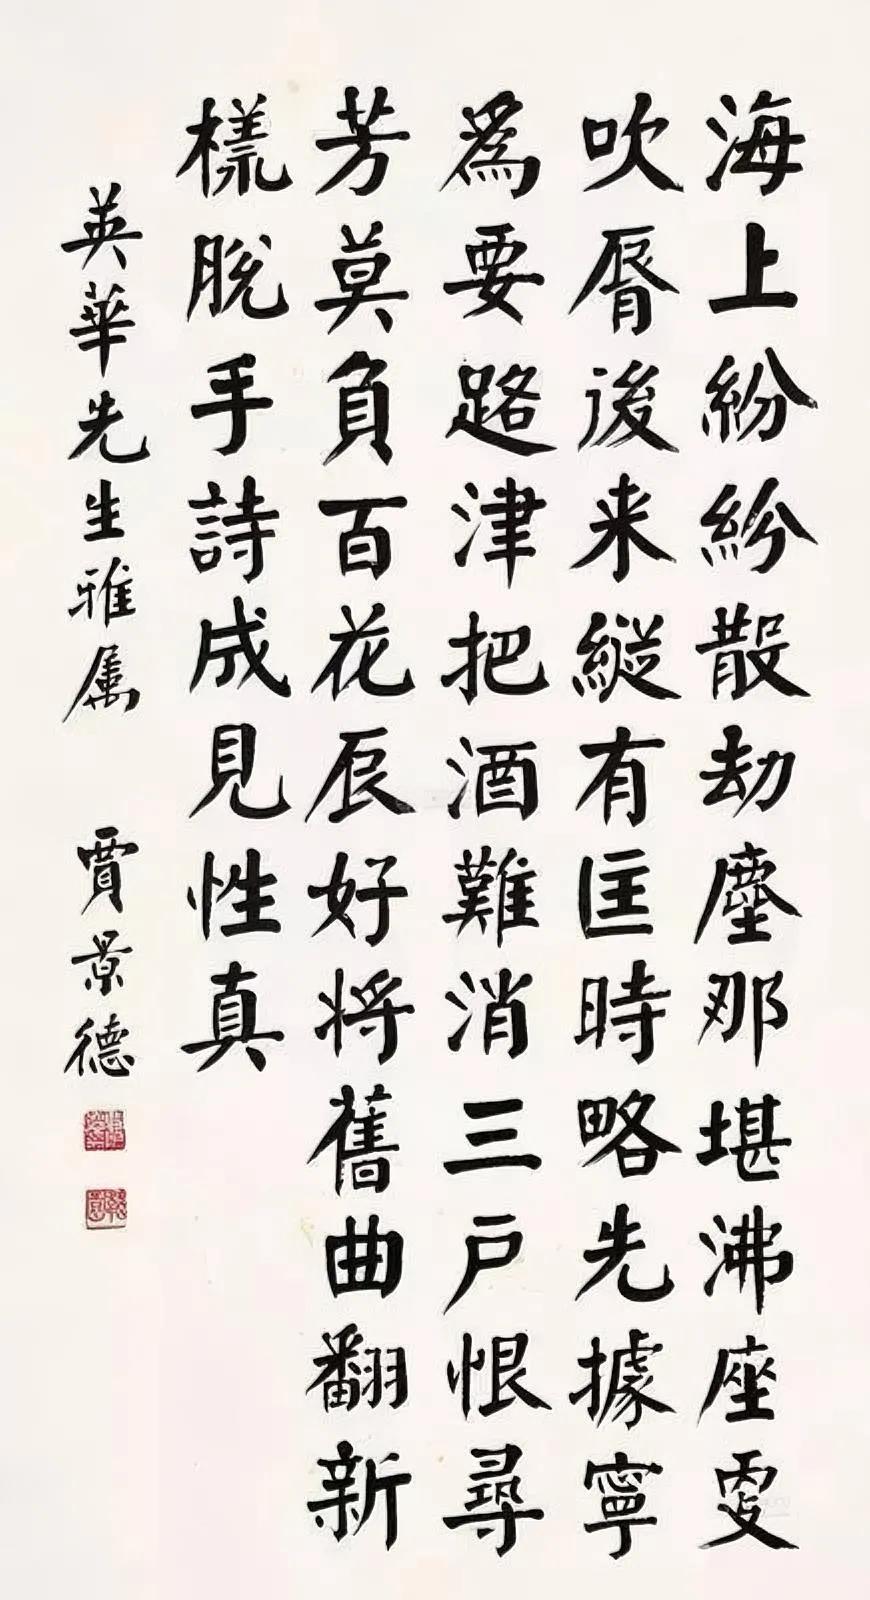 海上紛紛散劫塵那堪沸座㪅
吹脣後来縱有匡時略先據寧
爲要路津把酒難消三戶恨尋
芳莫負百花辰好将舊曲翻新
樣脫手詩成見性真
英華先生雅属 賈景德